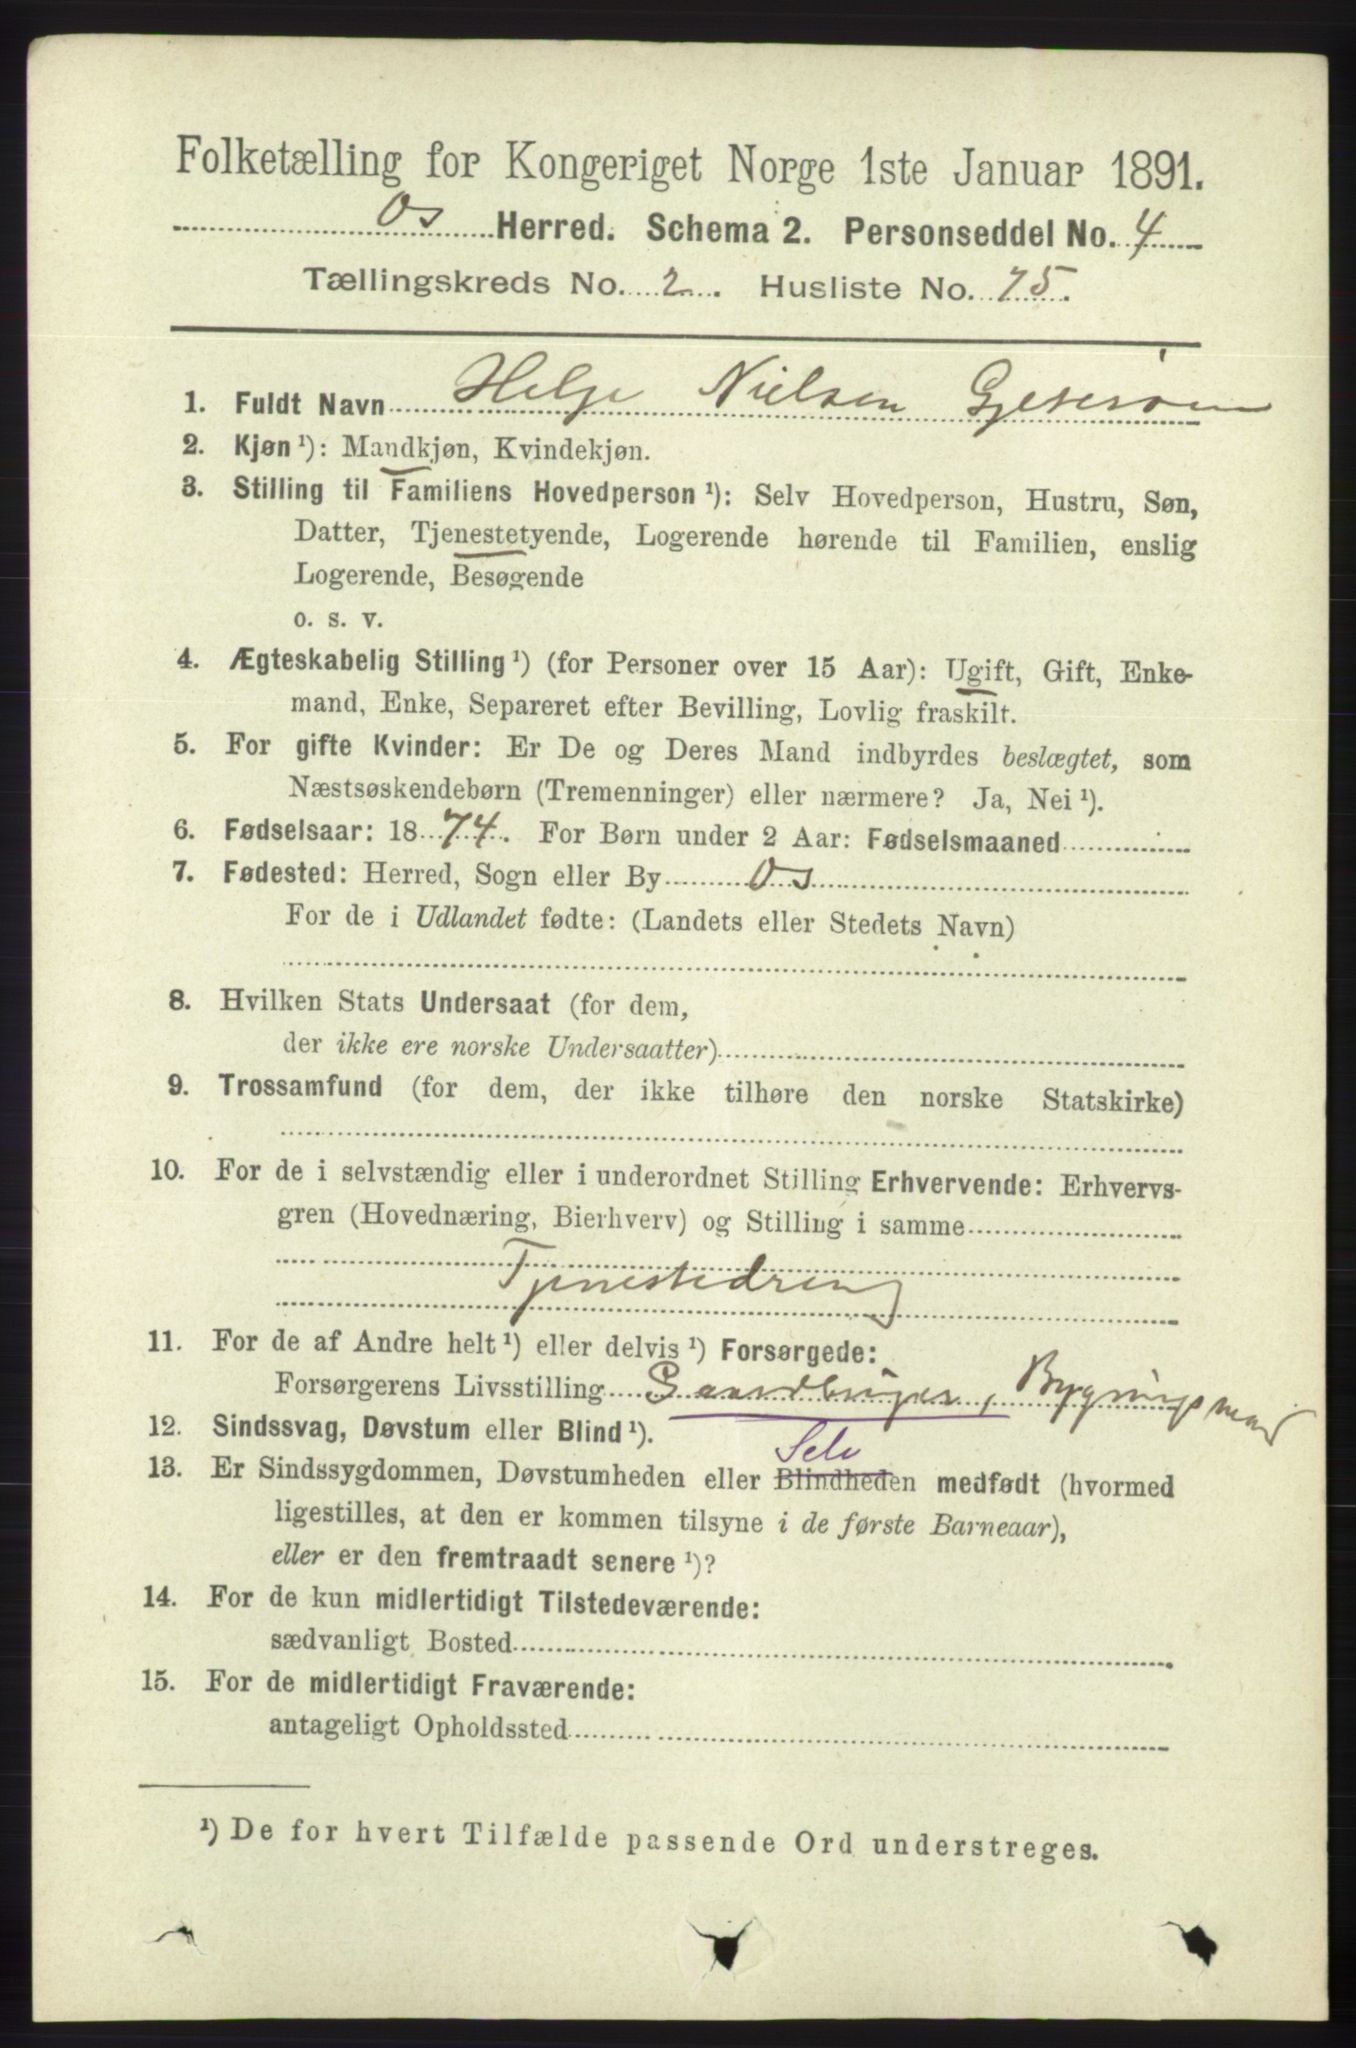 Folketælling for Kongeriget Norge 1ste Januar 1891.
Os Herred. Schema 2. Personseddel No. 4
Tællingskreds No. 2. Husliste No. 75.
1. Fuldt Navn Helge Nielsen
2. Kjøn ¹): Mandkjøn, Kvindekjøn.
3. Stilling til Familiens Hovedperson ¹): Selv Hovedperson, Hustru, Søn,
Datter, Tjenestetyende, Logerende hørende til Familien, enslig
Logerende, Besøgende
o. s. v.
4. Ægteskabelig Stilling ¹) (for Personer over 15 Aar): Ugift, Gift, Enke-
mand, Enke, Separeret efter Bevilling, Lovlig fraskilt.
5. For gifte Kvinder: Er De og Deres Mand indbyrdes beslægtet, som
Næstsøskendebørn (Tremenninger) eller nærmere? Ja, Nei ¹).
6. Fødselsaar: 1874. For Børn under 2 Aar: Fødselsmaaned
7. Fødested: Herred, Sogn eller By Os
For de i Udlandet fødte: (Landets eller Stedets Navn)
8. Hvilken Stats Undersaat (for dem,
der ikke ere norske Undersaatter)
9. Trossamfund (for dem, der ikke tilhøre den norske Statskirke)
10. For de i selvstændig eller i underordnet Stilling Erhvervende: Erhvervs-
gren (Hovednæring, Bierhverv) og Stilling i samme
Tjenestedreng
11. For de af Andre helt ¹) eller delvis ¹) Forsørgede:
Forsørgerens Livsstilling Gaardbruger, Bygningsmand
12. Sindssvag, Døvstum eller Blind ¹).
Selv
13. Er Sindssygdommen, Døvstumheden eller Blindheden medfødt (hvormed
ligestilles, at den er kommen tilsyne i de første Barneaar),
eller er den fremtraadt senere ¹)?
14. For de kun midlertidigt Tilstedeværende:
sædvanligt Bosted
15. For de midlertidigt Fraværende:
antageligt Opholdssted
¹) De for hvert Tilfælde passende Ord understreges.